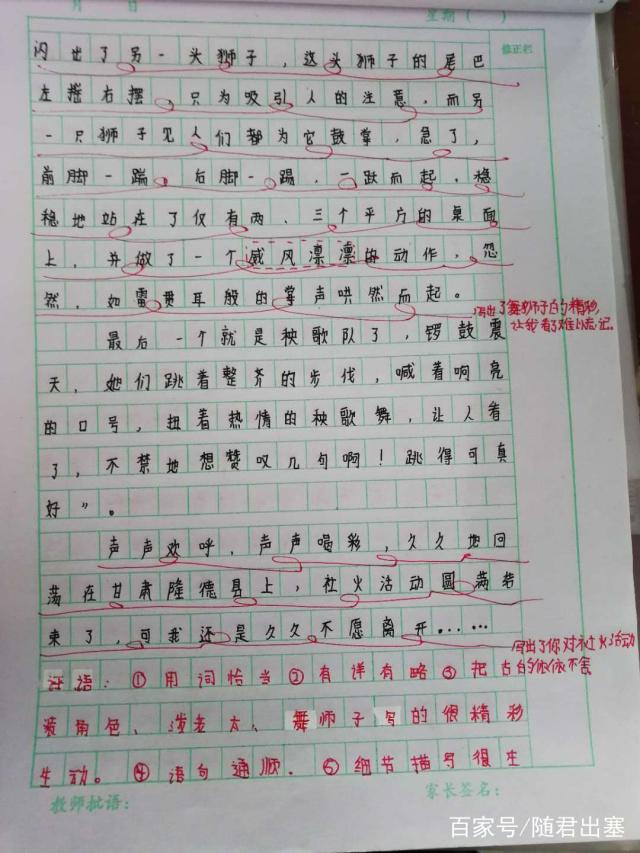 月 日 星期( )
修正栏
闪出了另一头狮子，这头狮子的尾巴
左摇右摆，只为吸引人的注意，而另
一只狮子见人们都为它鼓掌，急了，
前脚一踹，后脚一踢，一跃而起，稳
稳地站在了仅有两、三个平方的桌面
上，并做了一个威风凛凛的动作，忽
然，如雷贯耳般的掌声哄然而起。
写出了舞狮子的精彩，
让我看了难以忘记。
最后一个就是秧歌队了，锣鼓震
天，她们跳着整齐的步伐，喊着响亮
的口号，扭着热情的秧歌舞，让人看
了，不禁地想赞叹几句啊！跳得可真
好”。
声声欢呼，声声喝彩，久久地回
荡在甘肃隆德县上，社火活动圆满结
束了，可我还是久久不愿离开……
写出了你对社火活动
的依依不舍
评语：①用词恰当②有详有略③把
角色、泼老太、舞狮子写的很精彩
生动。④语句通顺．⑤细节描写很生
教师批语： 家长签名：
百家号/随君出塞